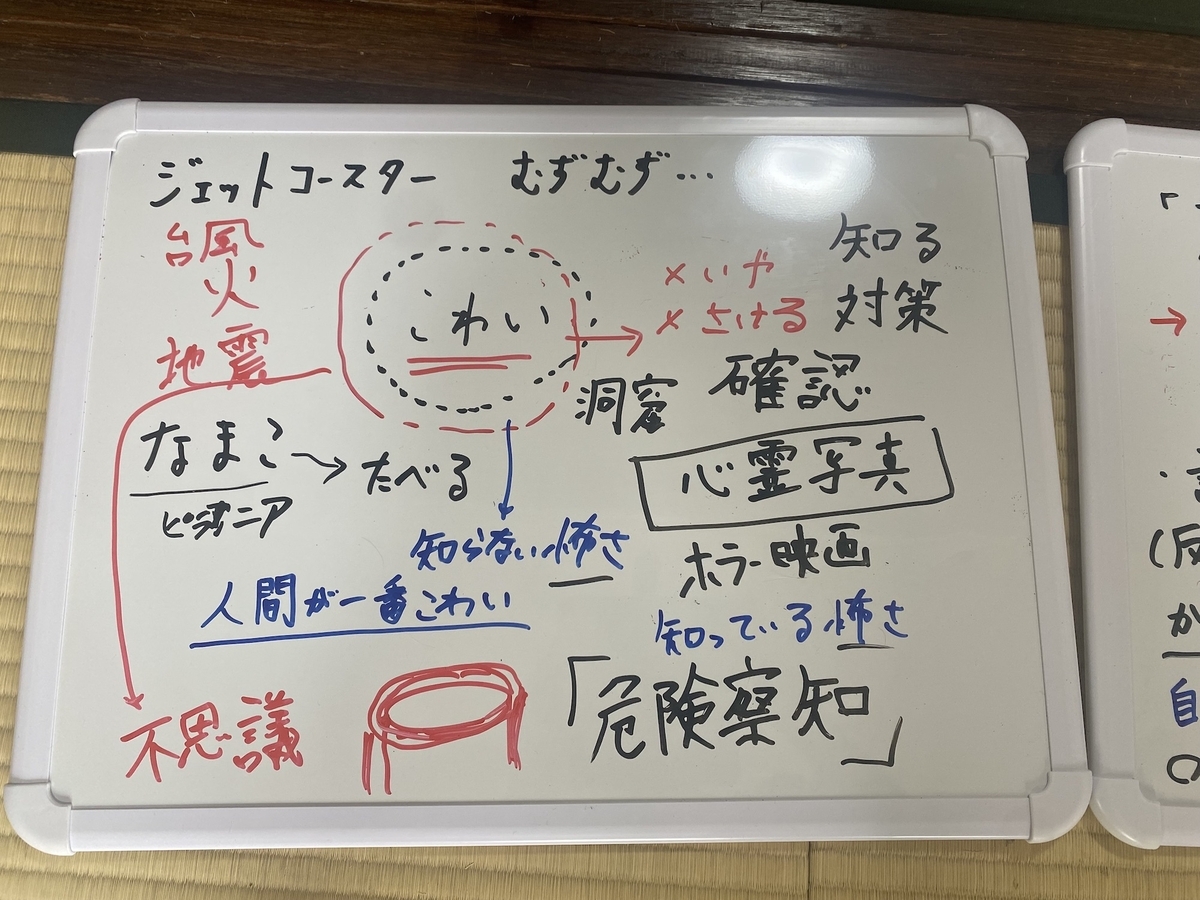 ジェットコースター むずむず…
台風
火
地震
こわい
×いや
×さける
知る
対策
確認
洞窟
なまこ→たべる
心霊写真
知らない怖さ
ホラー映画
人間が一番こわい
知っている怖さ
不思議
「危険察知」
→
か
自